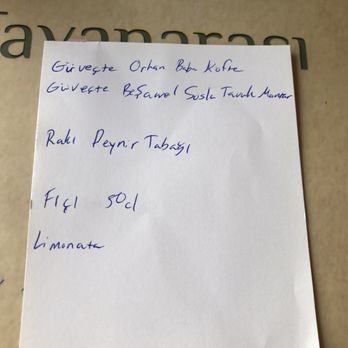 Tavanarası
Güveçte Orhan Baba Köfte
Güveçte Beşamel Soslu Tavuk Mantar
Rakı Peynir Tabağı
Fıçı 50cl
Limonata